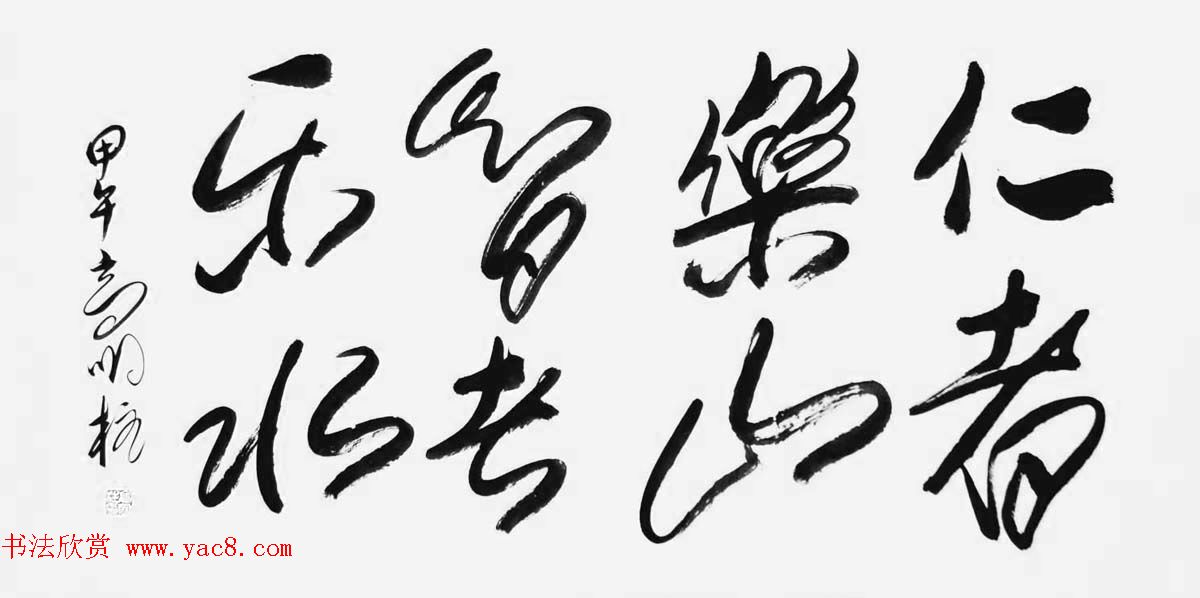 仁者
樂山
智者
乐水
甲午高明柱
书法欣赏 www.yac8.com